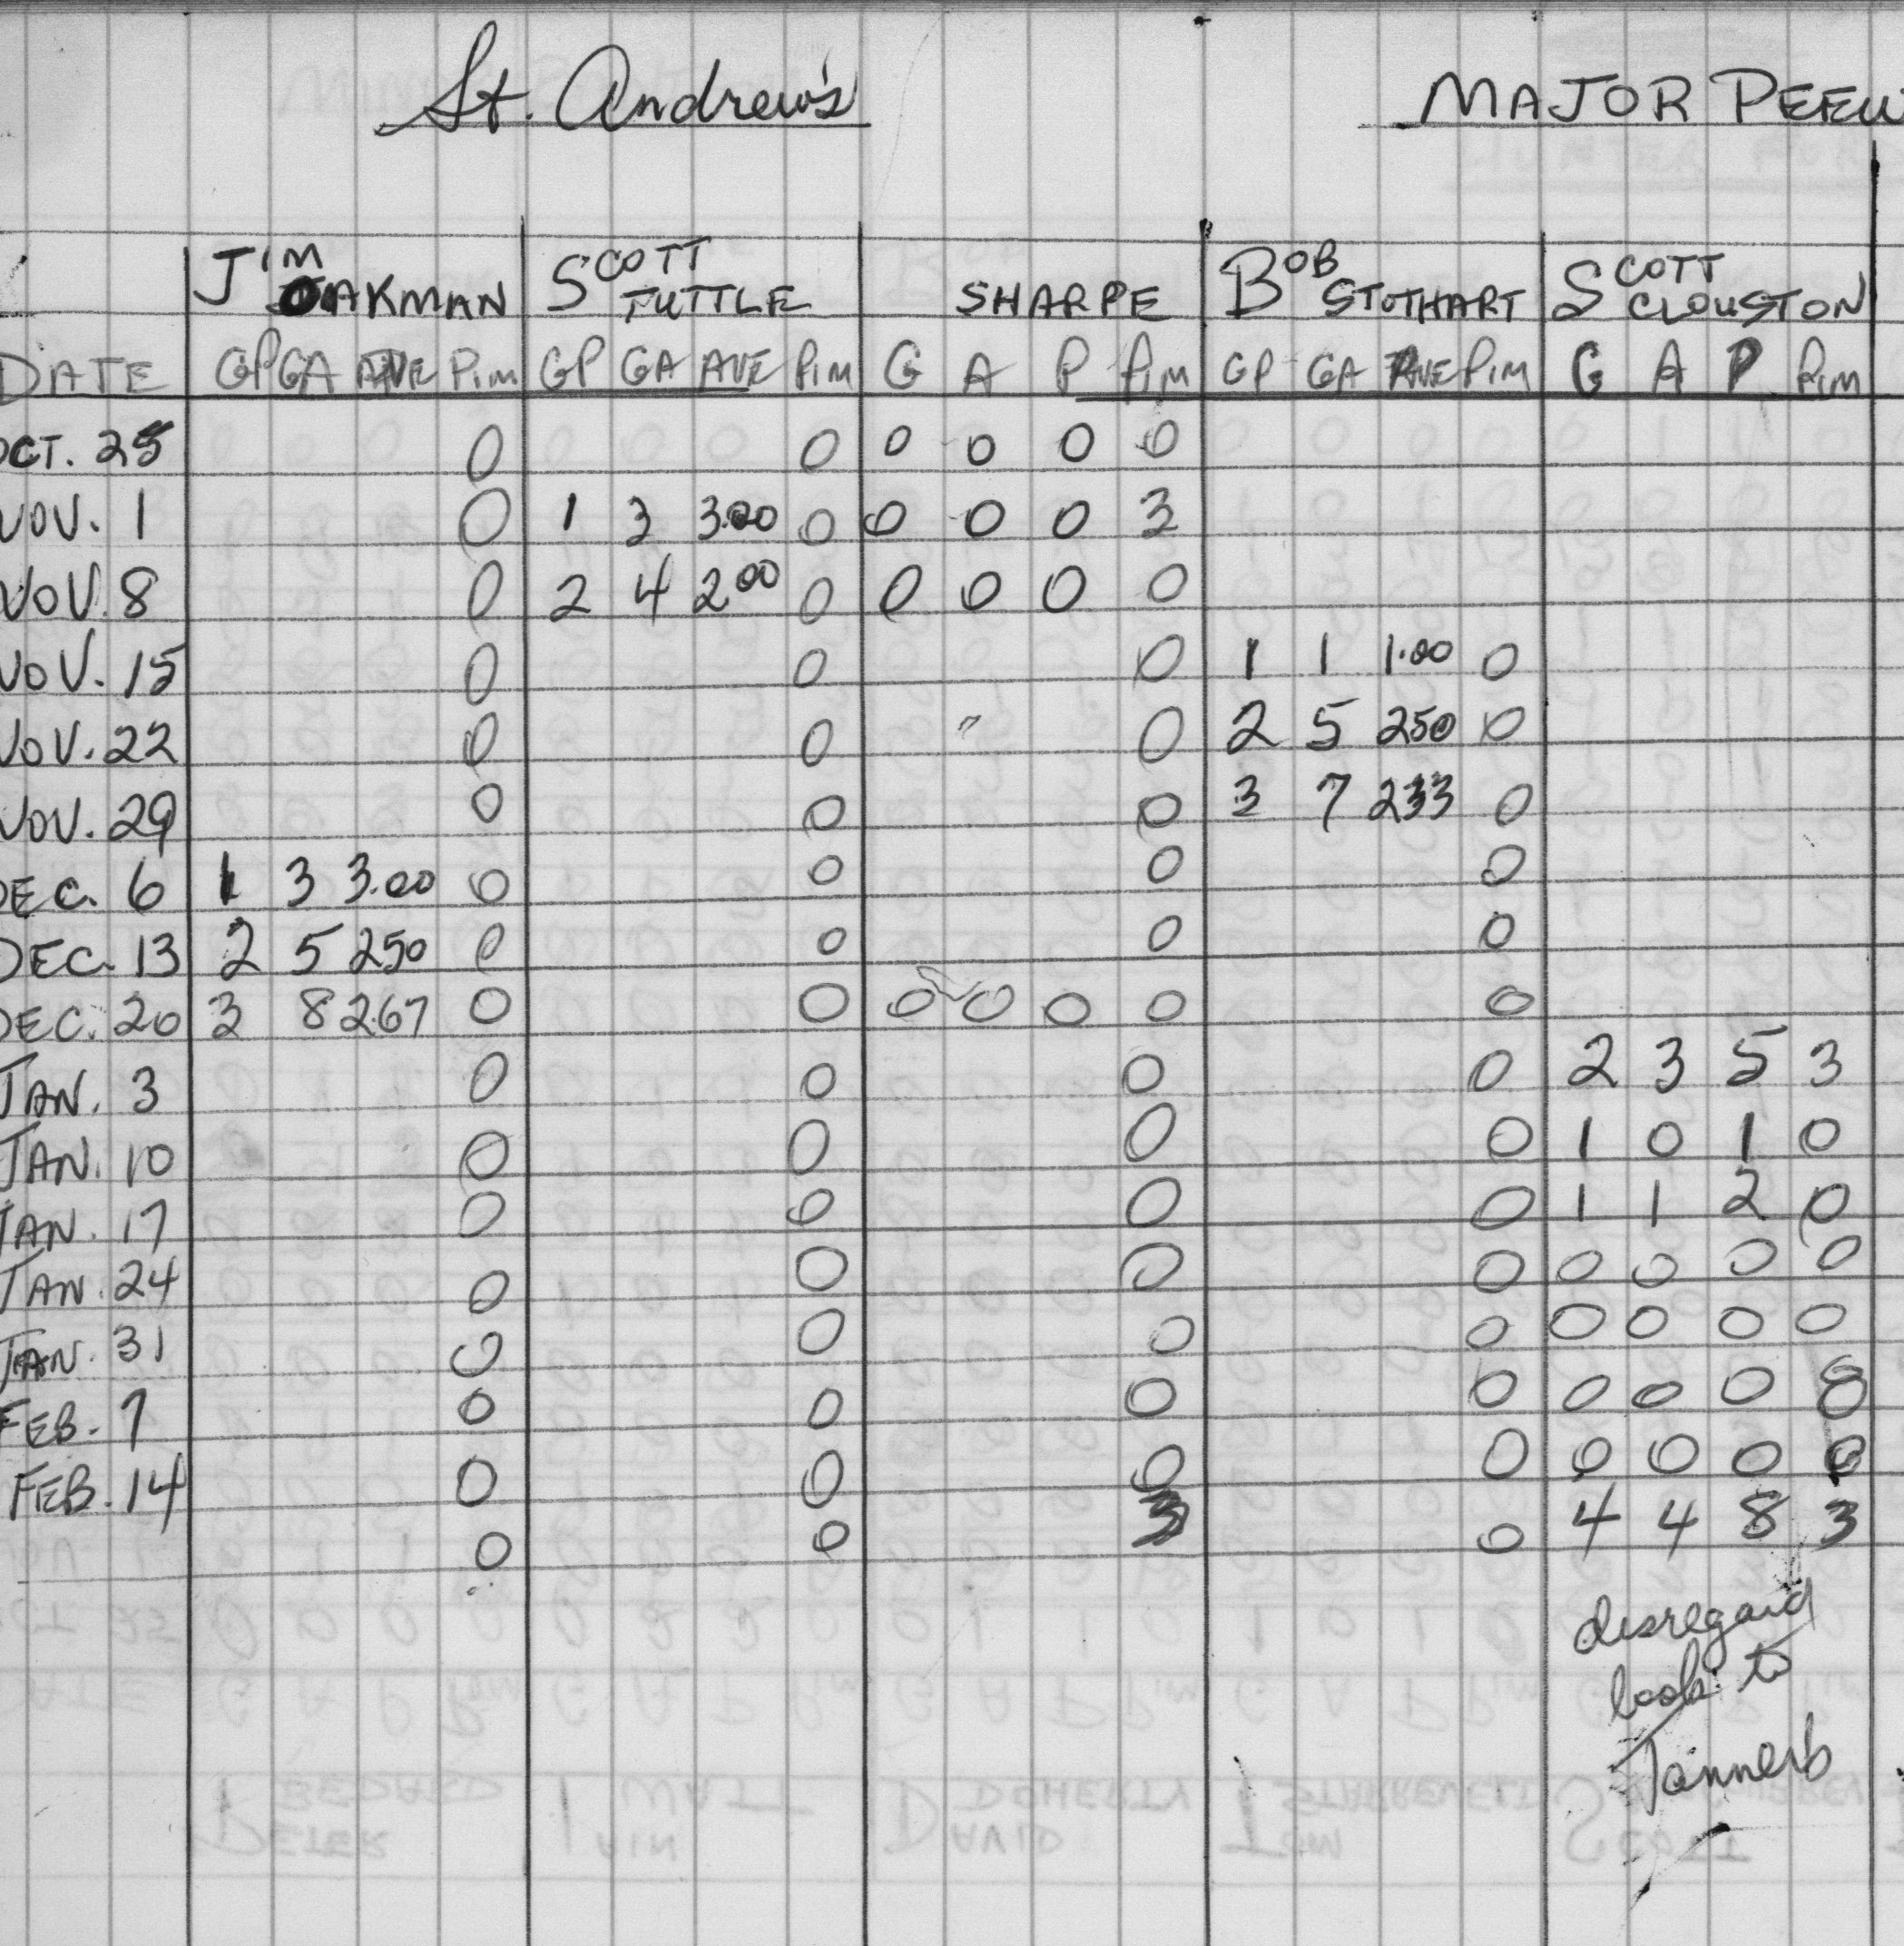 St. Andrew's MAJOR PEEW
JIM OAKMAN SCOTT TUTTLE SHARPE BOB STOTHART SCOTT CLOUSTON
DATE GP GA AVE PIM GP GA AVE PIM G A P PIM GP GA AVE PIM G A P PIM
OCT. 25 0 0 0 0 0 0
NOV. 1 0 1 3 3.00 0 0 0 0 3
NOV. 8 0 2 4 2.00 0 0 0 0 0
NOV. 15 0 0 0 1 1 1.00 0
NOV. 22 0 0 0 2 5 250 0
NOV. 29 0 0 0 3 7 233 0
DEC. 6 1 3 3.00 0 0 0 0
DEC. 13 2 5 250 0 0 0 0
DEC. 20 3 8 2.67 0 0 0 0 0 0 0
JAN. 3 0 0 0 0 2 3 5 3
JAN. 10 0 0 0 0 1 0 1 0
JAN. 17 0 0 0 0 1 1 2 0
JAN. 24 0 0 0 0 0 0 0 0
JAN. 31 0 0 0 0 0 0 0 0
FEB. 7 0 0 0 0 0 0 0
FEB. 14 0 0 0 0 0 0 0 0
0 0 3 0 4 4 8 3
disregard
to